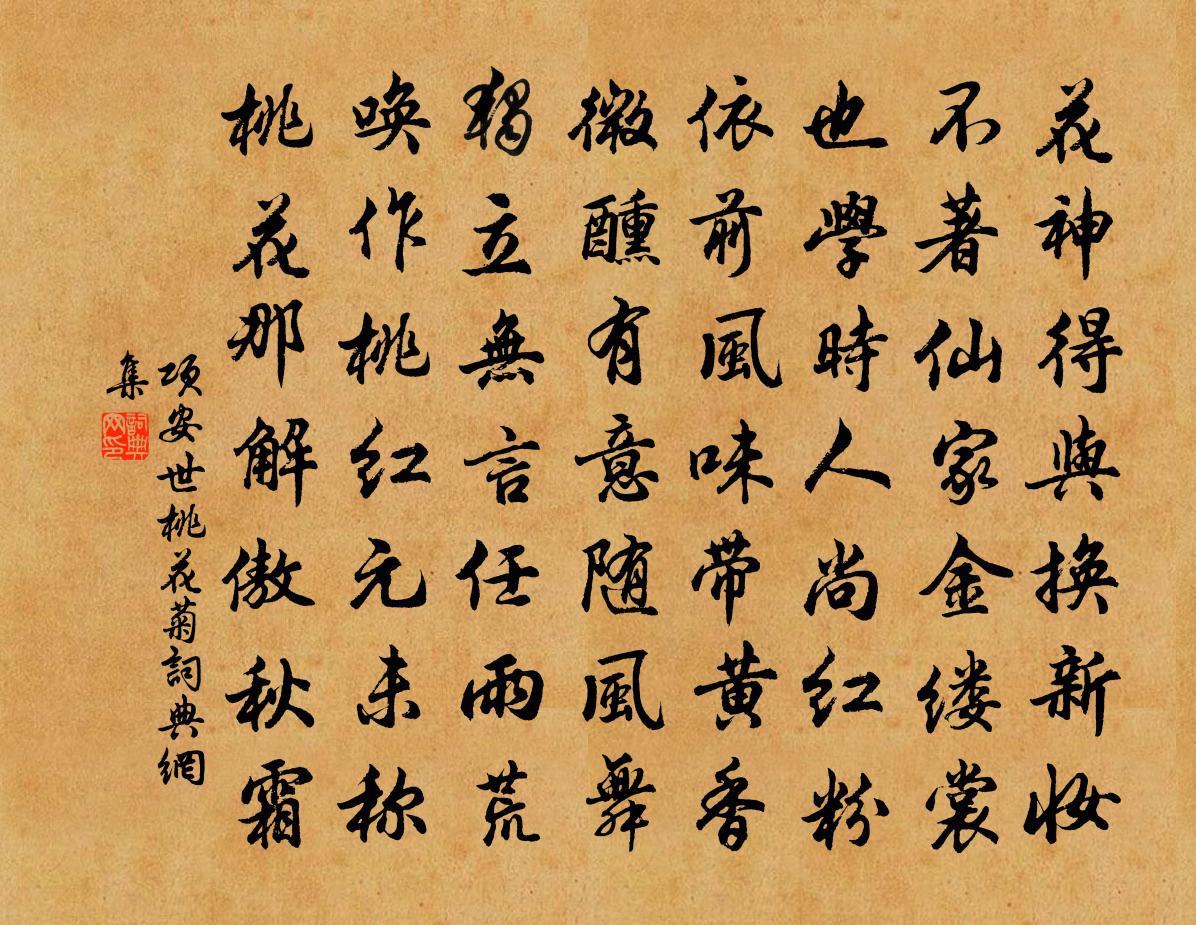 花神得與換新妝
不著仙家金缕裳
也學時人尚红粉
依前風味带黄香
微醺有意随風舞
獨立無言任雨荒
唤作桃红元未称
桃花那解傲秋霜
项安世桃花菊詞典網
集
詞典
网印